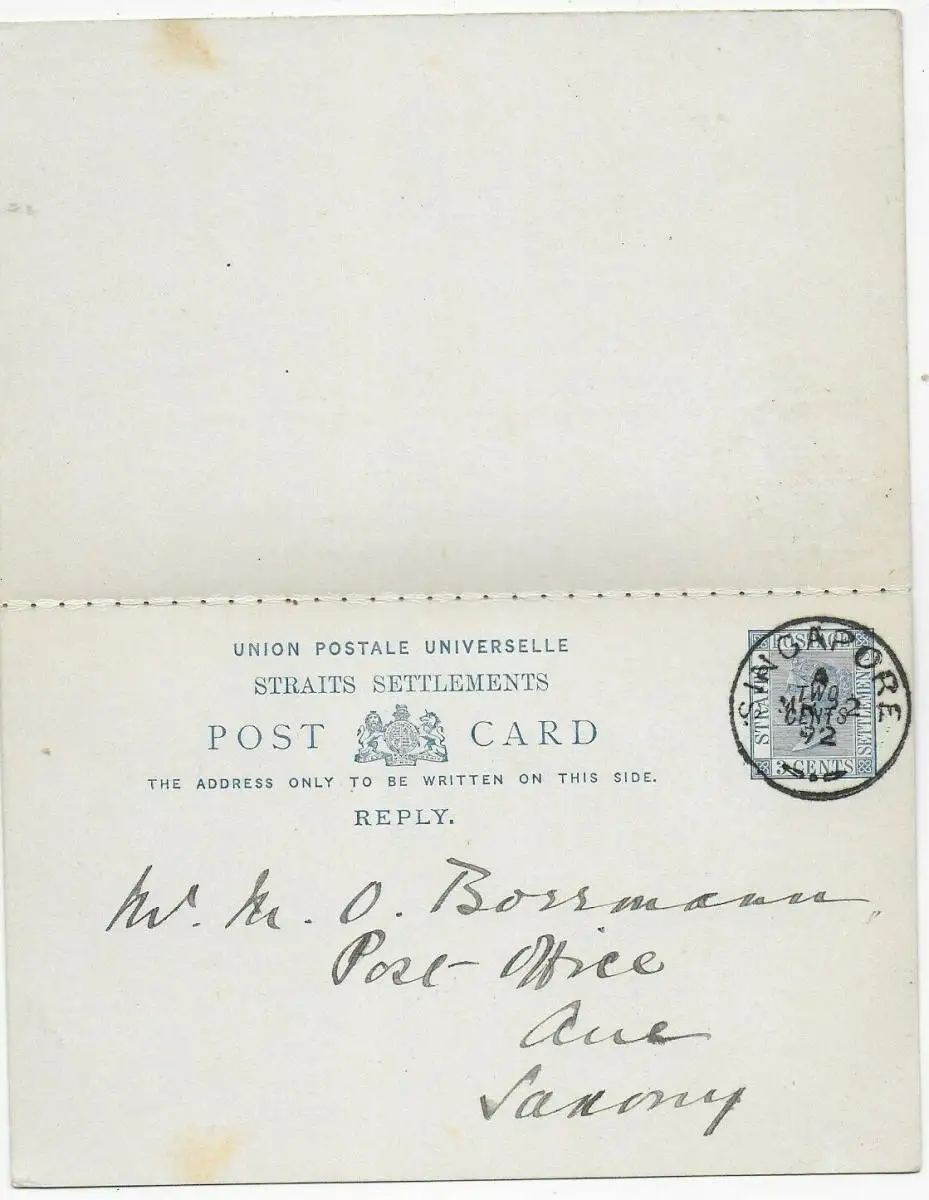 UNION POSTALE UNIVERSELLE
STRAITS SETTLEMENTS
POST CARD
THE ADDRESS ONLY TO BE WRITTEN ON THIS SIDE.
REPLY.
POSTAGE
STRAITS
SETTLEMENTS
3 CENTS
TWO
CENTS
SINGAPORE
A
2
92
Mr. M. O. Bossmann,
Post Office
Aue
Saxony